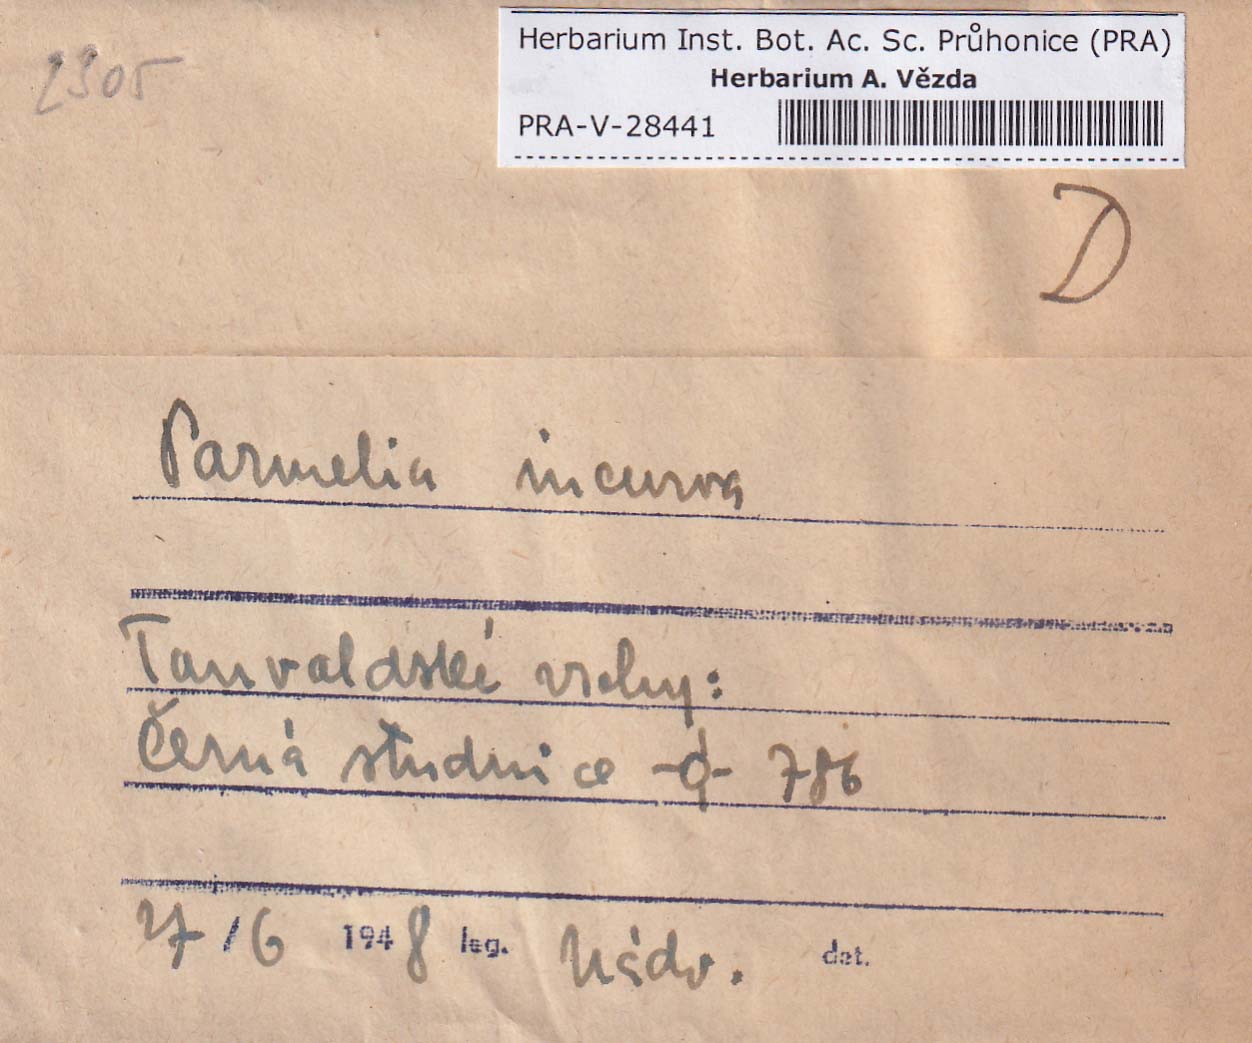 Herbarium Inst. Bot. Ac. Sc. Průhonice (PRA)
Herbarium A. Vězda
PRA-V-28441
2305
D
Parmelia incurva
Tanvaldské vrchy:
Černá studnice -o- 786
27/6 1948 leg. Nádv. det.